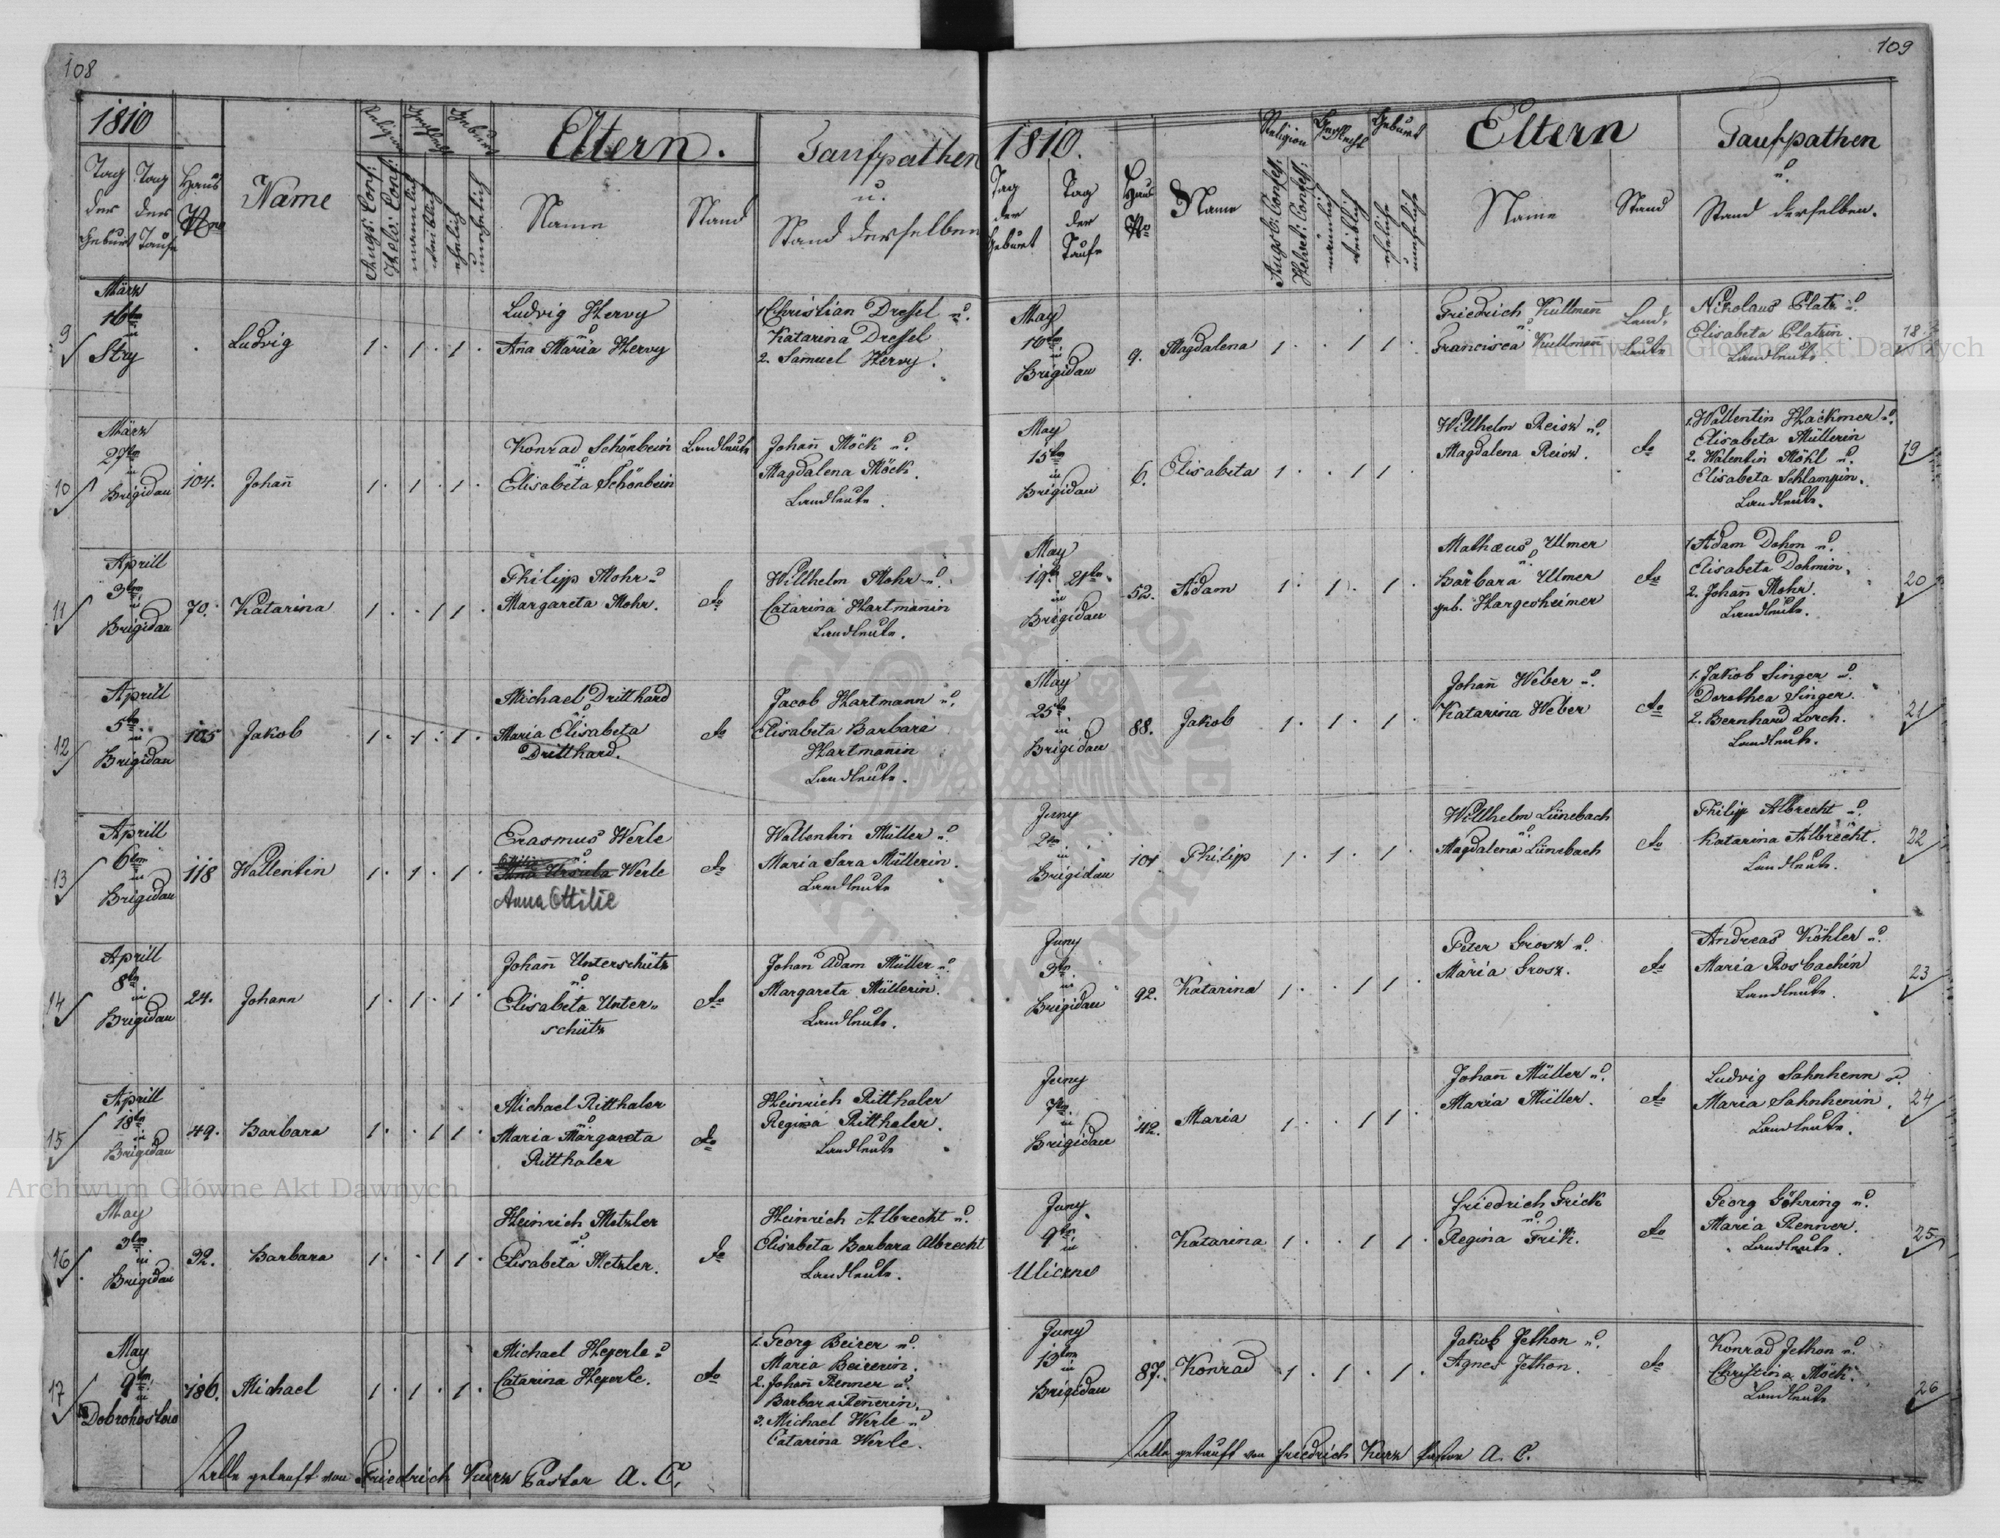 108
1810
Tag der Geburt
Tag der Taufe
Haus Nro
Name
Religion
Augs: Conf:
Helv: Conf:
Geschlecht
männlich
weiblich
Geburt
ehelich
unehelich
Eltern.
Name
Stand
Taufpathen
u.
Stand derselben
9
März
16ten
in
Stry
Ludvig
1 . 1 . 1 .
Ludvig Hervy
u.
Ana Maria Hervy
1. Christian Dressel u.
Katarina Dressel
2. Samuel Hervy.
10
März
27ten
in
Brigidau
104.
Johañ
1 . 1 . 1 .
Konrad Schönbein
u.
Elisabeta Schönbein
Landleute
Johañ Möck u.
Magdalena Möck.
Landleute.
11
Aprill
3ten
in
Brigidau
70.
Katarina
1 . . 1 1 .
Philipp Mohr u.
Margareta Mohr.
do
Willhelm Mohr u.
Catarina Hartmanin
Landleute.
12
Aprill
5ten
in
Brigidau
105
Jakob
1 . 1 . 1 .
Michael Dritthard
u.
Maria Elisabeta
Dritthard.
do
Jacob Hartmann u.
Elisabeta Barbara
Hartmañin
Landleute.
13
Aprill
6ten
in
Brigidau
118
Wallentin
1 . 1 . 1 .
Erasmus Werle
u.
Ana Ursula Werle
Anna Ottilie
do
Wallentin Müller u.
Maria Sara Müllerin.
Landleute
14
Aprill
8ten
in
Brigidau
24.
Johann
1 . 1 . 1 .
Johañ Unterschütz
u.
Elisabeta Unter-
schütz
do
Johañ Adam Müller u.
Margareta Müllerin.
Landleute.
15
Aprill
18ten
in
Brigidau
49.
Barbara
1 . . 1 1 .
Michael Ritthaler
u.
Maria Margareta
Ritthaler
do
Heinrich Ritthaler
Regina Ritthaler.
Landleute
16
May
3ten
in
Brigidau
32.
Barbara
1 . . 1 1 .
Heinrich Metzler
u.
Elisabeta Metzler.
do
Heinrich Albrecht u.
Elisabeta Barbara Albrecht
Landleute.
17
May
9ten
in
Dobrohostow
186.
Michael
1 . 1 . 1 .
Michael Heperle u.
Catarina Heperle.
do
1. Georg Beirer u.
Maria Beirerin.
2. Johañ Renner u.
Barbara Reñerin.
3. Michael Werle u.
Catarina Werle.
Alle getauft von Friedrich Kurz Pastor A. C.
109
1810.
Tag der Geburt
Tag der Taufe
Haus No
Name
Religion
Augsb: Confess.
Helvet: Confess.
Geschlecht
männlich
weiblich
Geburt
eheliche
uneheliche
Eltern
Name
Stand
Taufpathen
u.
Stand derselben.
May
10ten
in
Brigidau
9.
Magdalena
1 . . 1 1 .
Friedrich Kullmañ
u.
Francisca Kullmañ
Land-
leute
Nikolaus Platz u.
Elisabeta Platzin.
Landleute
18
May
15ten
in
Brigidau
6.
Elisabeta
1 . . 1 1 .
Willhelm Reisz u.
Magdalena Reisz.
do
1. Wallentin Hackmer u.
Elisabeta Müllerin
2. Walentin Möhl u.
Elisabeta Schlampin.
Landleute.
19
May
19t. 21ten
in
Brigidau
52.
Adam
1 . 1 . 1 .
Mathæus Ulmer
u.
Barbara Ulmer
geb. Hargesheimer
do
1. Adam Dohm u.
Elisabeta Dohmin.
2. Johañ Mohr.
Landleute.
20
May
25ten
in
Brigidau
88.
Jakob
1 . 1 . 1 .
Johañ Weber u.
Katarina Weber
do
1. Jakob Singer u.
Dorothea Singer.
2. Bernhard Lorch.
Landleute.
21
Juny
2ten
in
Brigidau
101
Philipp
1 . 1 . 1 .
Willhelm Lünebach
u.
Magdalena Lünebach
do
Philipp Albrecht u.
Katarina Albrecht.
Landleute.
22
Juny
3ten
in
Brigidau
92.
Katarina
1 . . 1 1 .
Peter Grosz u.
Maria Grosz.
do
Andreas Köhler u.
Maria Rosbachin
Landleute.
23
Juny
7ten
in
Brigidau
42.
Maria
1 . . 1 1
Johañ Müller u.
Maria Müller.
do
Ludvig Sahnhenn u.
Maria Sahnhenin.
Landleute.
24
Juny
9ten
in
Uliczno
Katarina
1 . . 1 1 .
Friedrich Frick
u.
Regina Frik.
do
Georg Göhring u.
Maria Renner.
Landleute.
25
Juny
13ten
in
Brigidau
87.
Konrad
1 . 1 . 1 .
Jakob Jethon u.
Agnes Jethon.
do
Konrad Jethon u.
Christina Möck.
Landleute
26
Alle getauft von Friedrich Kurz Pastor A. C.
Archiwum Główne Akt Dawnych
Archiwum Główne Akt Dawnych
ARCHIWUM GŁÓWNE AKT DAWNYCH